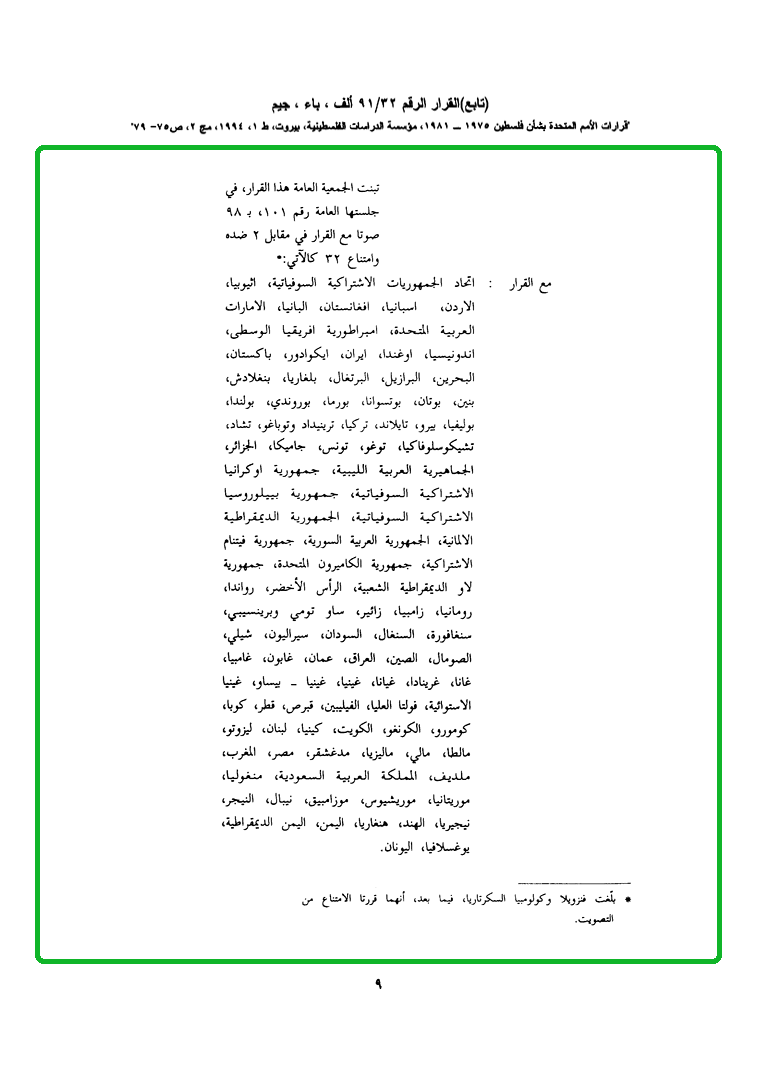 (تابع)القرار الرقم ٩١/٣٢ ألف ، باء ، جيم
"قرارات الأمم المتحدة بشأن فلسطين ١٩٧٥ ــ ١٩٨١، مؤسسة الدراسات الفلسطينية، بيروت، ط ١، ١٩٩٤، مج ٢، ص٧٥- ٧٩"
تبنت الجمعية العامة هذا القرار، في
جلستها العامة رقم ١٠١، بـ ٩٨
صوتا مع القرار في مقابل ٢ ضده
وامتناع ٣٢ كالآتي:*
مع القرار : اتحاد الجمهوريات الاشتراكية السوفياتية، اثيوبيا،
الاردن، اسبانيا، افغانستان، البانيا، الامارات
العربية المتحدة، امبراطورية افريقيا الوسطى،
اندونيسيا، اوغندا، ايران، ايكوادور، باكستان،
البحرين، البرازيل، البرتغال، بلغاريا، بنغلادش،
بنين، بوتان، بوتسوانا، بورما، بوروندي، بولندا،
بوليفيا، بيرو، تايلاند، تركيا، ترينيداد وتوباغو، تشاد،
تشيكوسلوفاكيا، توغو، تونس، جاميكا، الجزائر،
الجماهيرية العربية الليبية، جمهورية اوكرانيا
الاشتراكية السوفياتية، جمهورية بييلوروسيا
الاشتراكية السوفياتية، الجمهورية الديمقراطية
الالمانية، الجمهورية العربية السورية، جمهورية فيتنام
الاشتراكية، جمهورية الكاميرون المتحدة، جمهورية
لاو الديمقراطية الشعبية، الرأس الأخضر، رواندا،
رومانيا، زامبيا، زائير، ساو تومي وبرينسيبي،
سنغافورة، السنغال، السودان، سيراليون، شيلي،
الصومال، الصين، العراق، عمان، غابون، غامبيا،
غانا، غرينادا، غيانا، غينيا، غينيا ــ بيساو، غينيا
الاستوائية، فولتا العليا، الفيليبين، قبرص، قطر، كوبا،
كومورو، الكونغو، الكويت، كينيا، لبنان، ليزوتو،
مالطا، مالي، ماليزيا، مدغشقر، مصر، المغرب،
ملديف، المملكة العربية السعودية، منغوليا،
موريتانيا، موريشيوس، موزامبيق، نيبال، النيجر،
نيجيريا، الهند، هنغاريا، اليمن، اليمن الديمقراطية،
يوغسلافيا، اليونان.
* بلّغت فنزويلا وكولومبيا السكرتاريا، فيما بعد، أنهما قررتا الامتناع من
التصويت.
٩